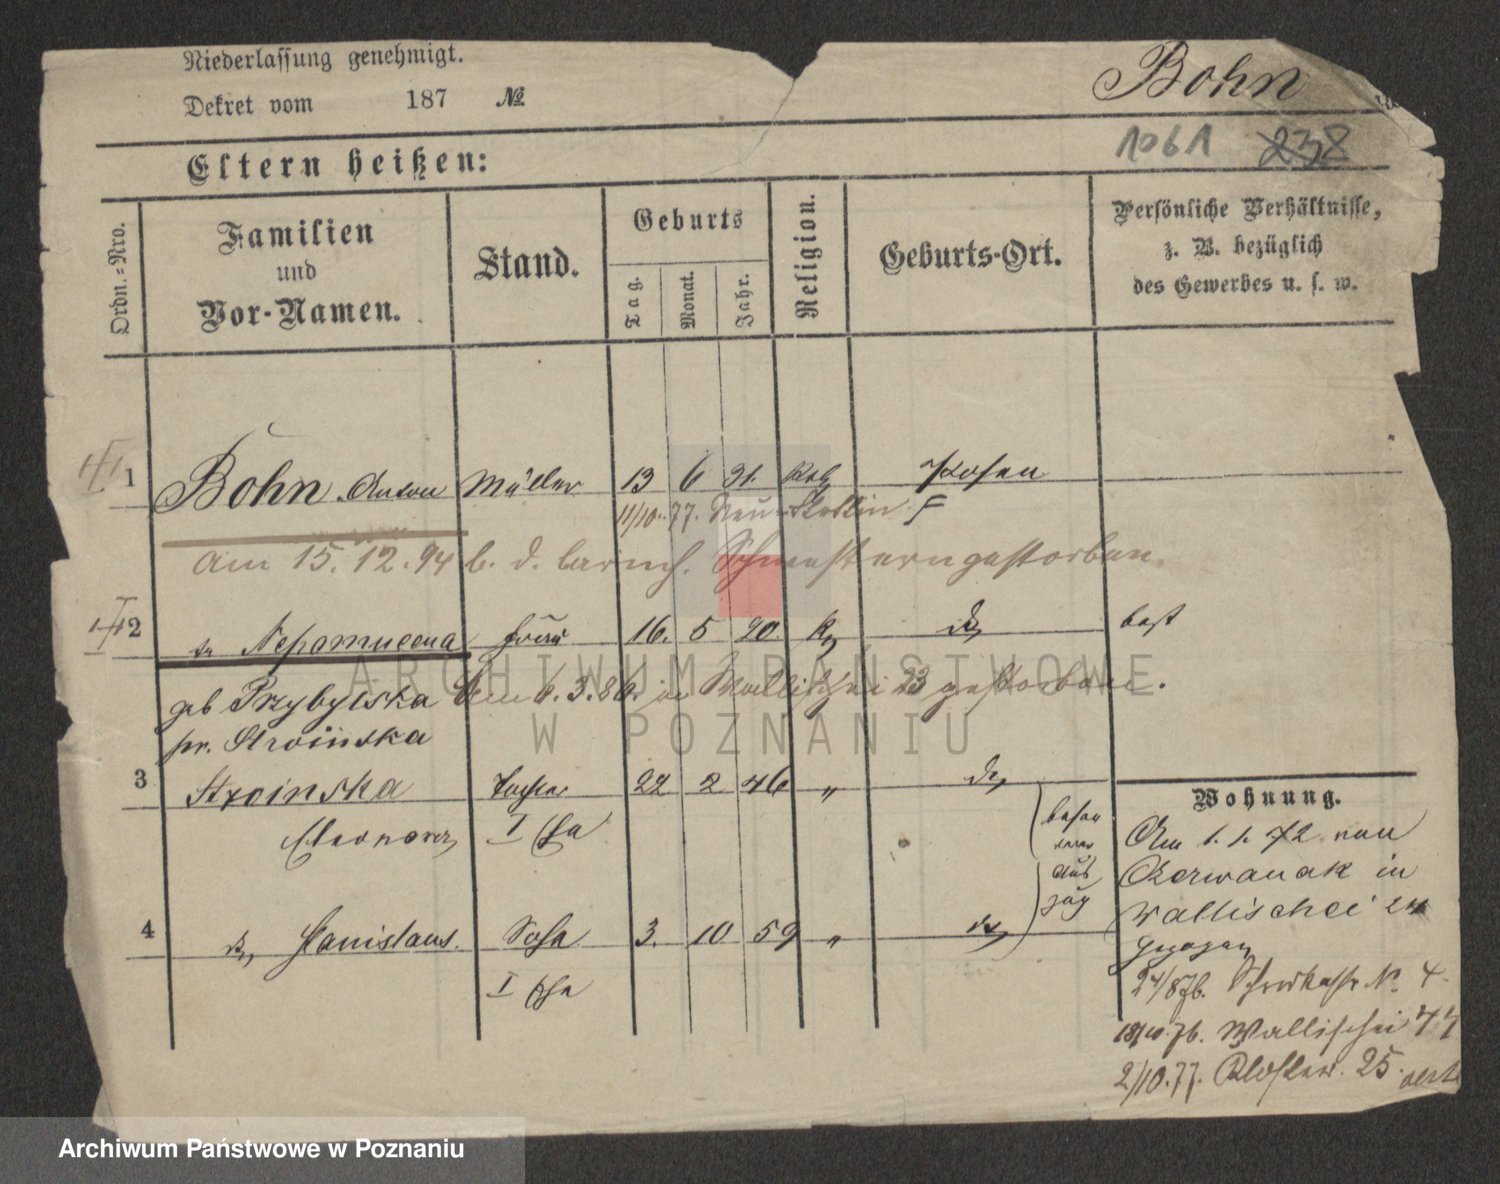 Niederlassung genehmigt.
Dekret vom 187 №
Bohn
1061 238
Eltern heißen:
Ordn.=Nro.
Familien und Vor-Namen.
Stand.
Geburts
Tag. Monat. Jahr.
Religion.
Geburts-Ort.
Persönliche Verhältnisse, z. B. bezüglich des Gewerbes u. s. w.
1 Bohn Anton Müller 13 6 31. Kath Posen
11/10. 77. Neu-Stettin
Am 15. 12. 94 b. d. barmh. Schwestern gestorben.
2 Nepomucena Frau 16. 5 20 K
geb Przybylska Am 6. 3. 86. in Wallischei 23 gestorben.
pr. Stroinska
3 Stroinska Tochter 22 2 46 "
Eleonora I Ehe
4 Stanislaus. Sohn 3. 10 59 "
I Ehe
beson
aus
zug
Wohnung.
Am 1. 1. 72 von
Czerwanak in
Wallischei 24
gezogen
24/8 76. No. 4.
18/10. 76. Wallischei 77
2/10. 77. Kloster. 25.
ARCHIWUM PAŃSTWOWE
W POZNANIU
Archiwum Państwowe w Poznaniu